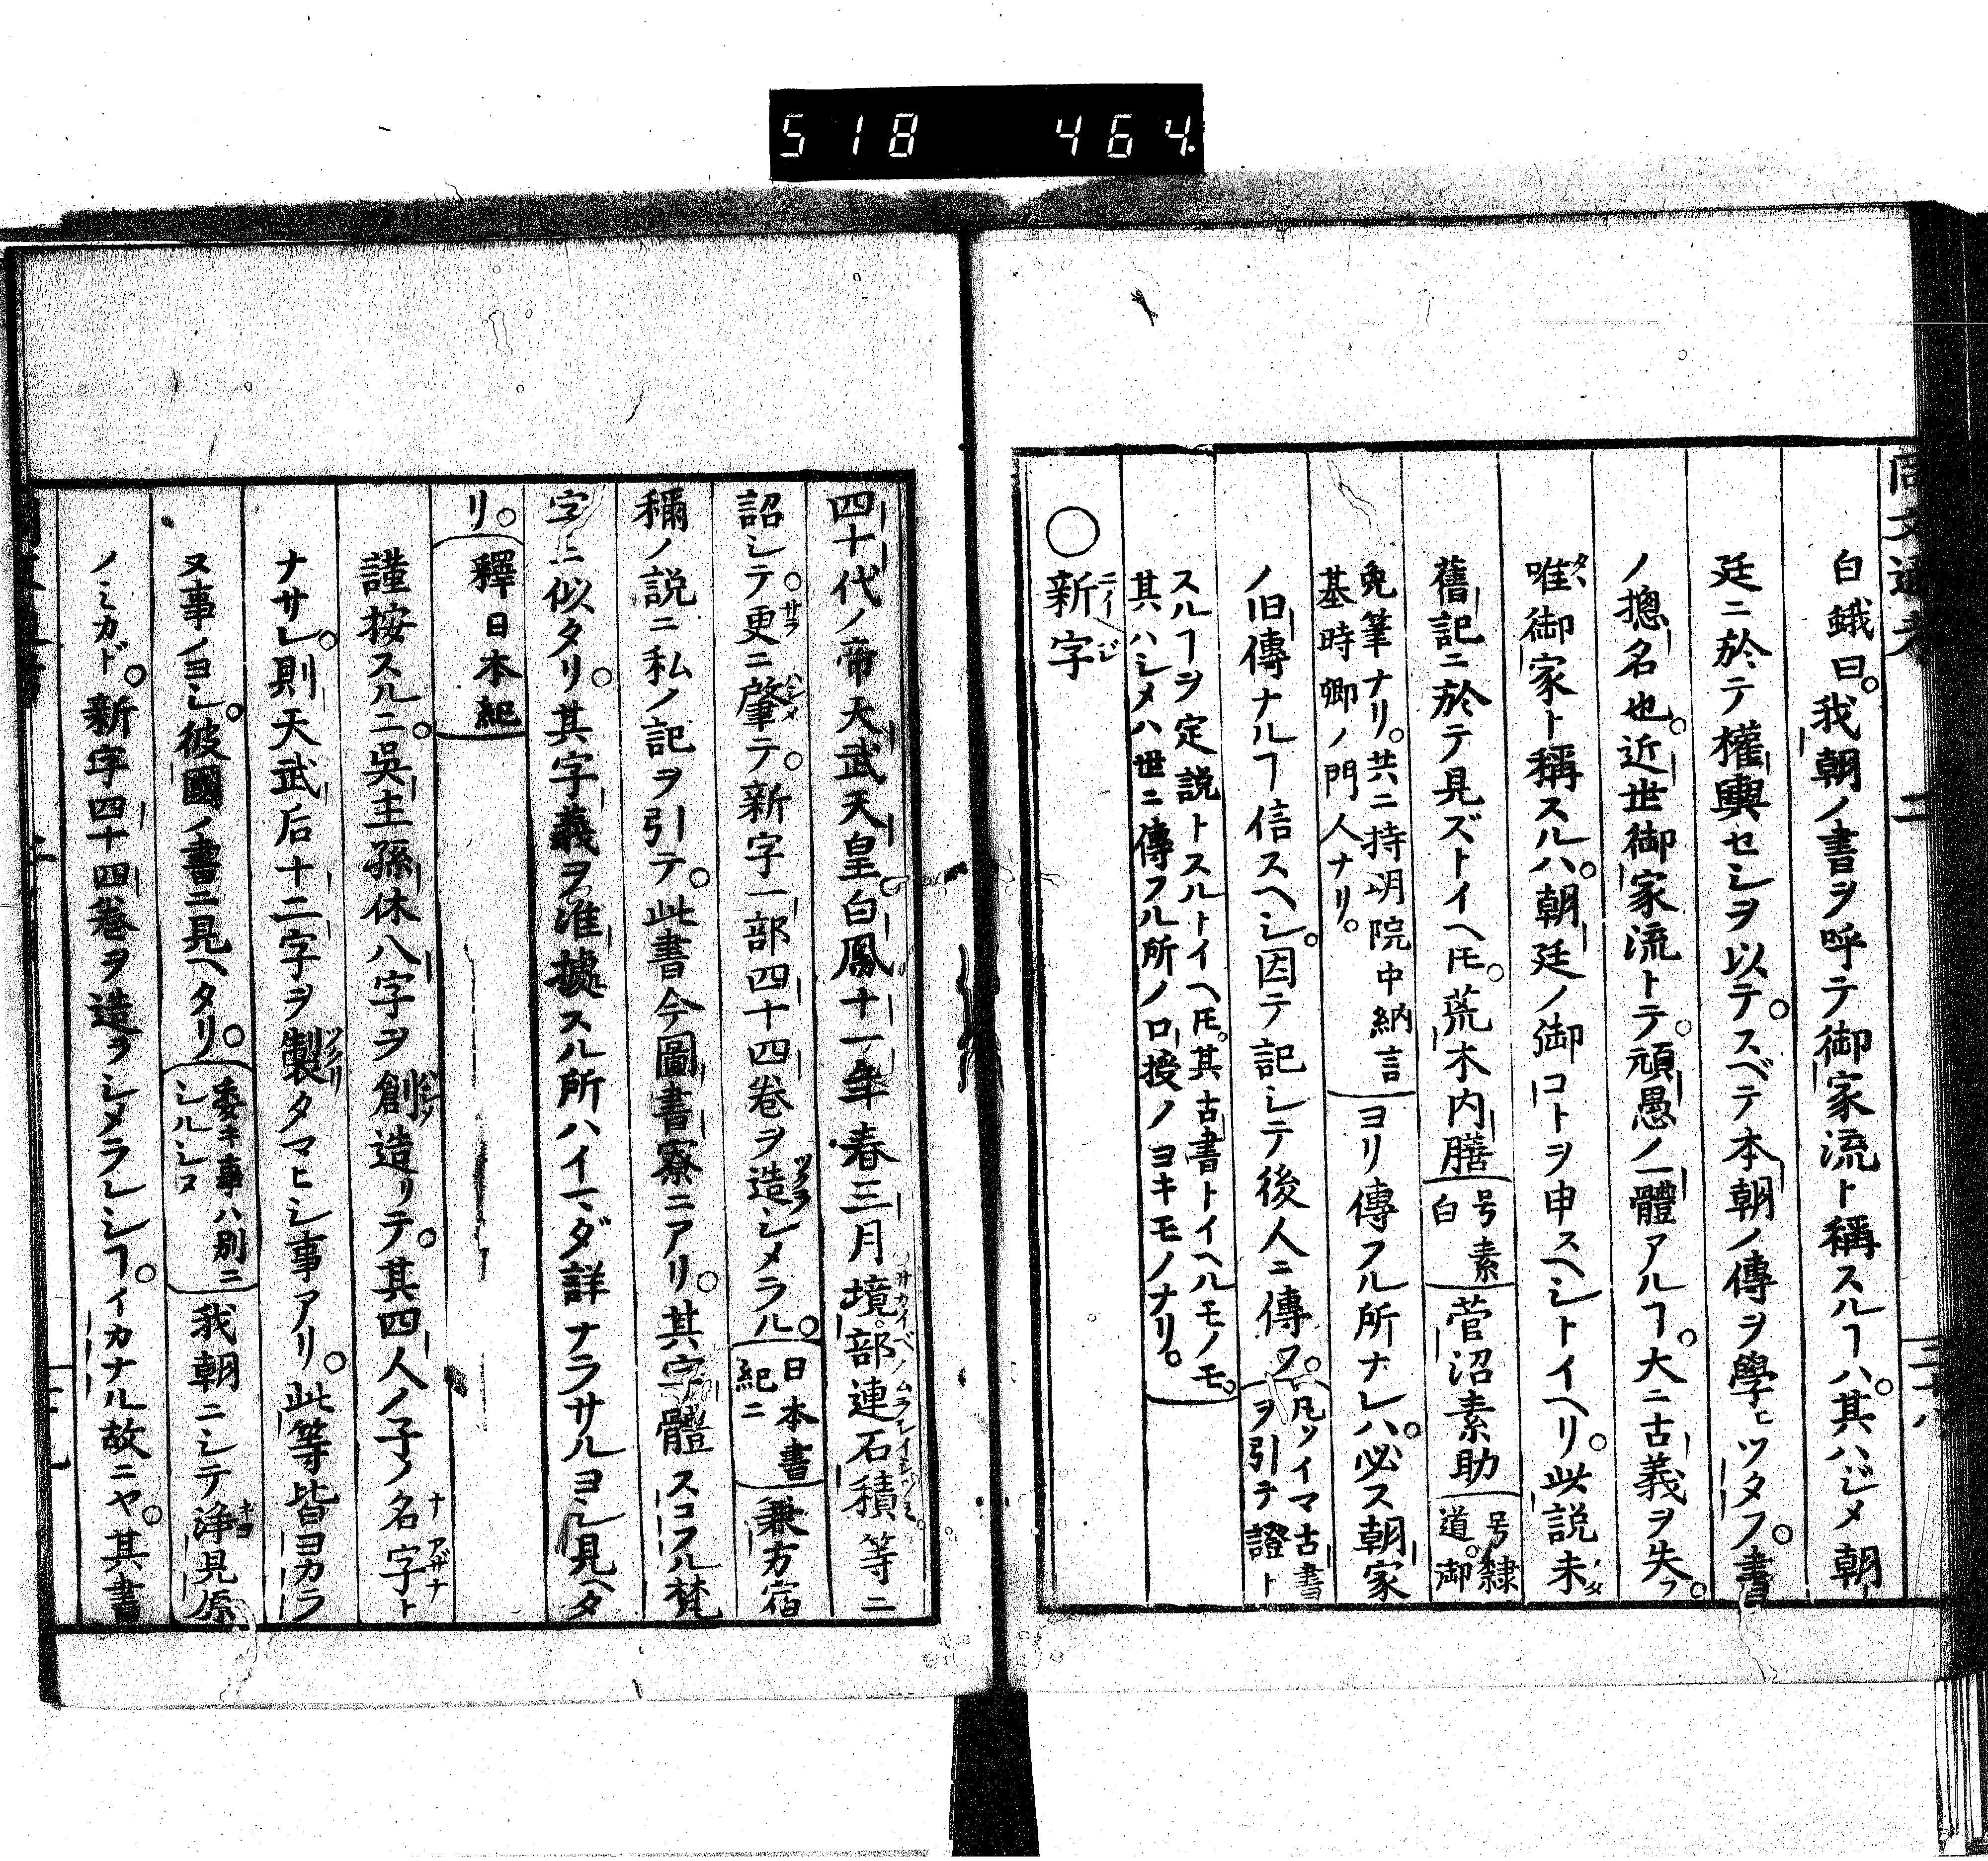 518 464.
白蛾曰。我朝ノ書ヲ呼テ御家流ト稱スルヿハ。其ハジメ朝
廷ニ於テ權輿セシヲ以テ。スベテ本朝ノ傳ヲ學ヒツタフ。書
ノ摠名也。近世御家流トテ。頑愚ノ一體アルヿ。大ニ古義ヲ失フ。
唯御家ト稱スルハ。朝廷ノ御コトヲ申スヘシトイヘリ。此説未タ
舊記ニ於テ見ズトイヘ𪜈。荒木内膳
号素
白
菅沼素助
号隸
道。御
免筆ナリ。共ニ持明院中納言
基時卿ノ門人ナリ。
ヨリ傳フル所ナレハ。必ス朝家
ノ旧傳ナルヿ信スヘシ。因テ記シテ後人ニ傳フ。
凡ソイマ古書
ヲ引テ證ト
スルヿヲ定説トスルトイヘ𪜈。其古書トイヘルモノモ。
其ハシメハ世ニ傳フル所ノ口授ノヨキモノナリ。
○新字
四十代ノ帝天武天皇白鳳十一年春三月境部連石積等ニ
詔シテ。更ニ肇テ。新字一部四十四巻ヲ造シメラル。
日本書
紀ニ
兼方宿
稱ノ説ニ私ノ記ヲ引テ。此書今圖書寮ニアリ。其字體スコフル梵
字ニ似タリ。其字義ヲ准據スル所ハイマダ詳ナラサルヨシ見ヘタ
リ。
釋日本紀
謹按スルニ。吳主孫休八字ヲ創造リテ。其四人ノ子ノ名字ト
ナサレ。則天武后十二字ヲ製タマヒシ事アリ。此等皆ヨカラ
ヌ事ノヨシ。彼國ノ書ニ見ヘタリ。
委キ事ハ別ニ
シルシヌ
我朝ニシテ浄見原
ノミカド。新字四十四巻ヲ造ラシメラレシヿ。イカナル故ニヤ。其書